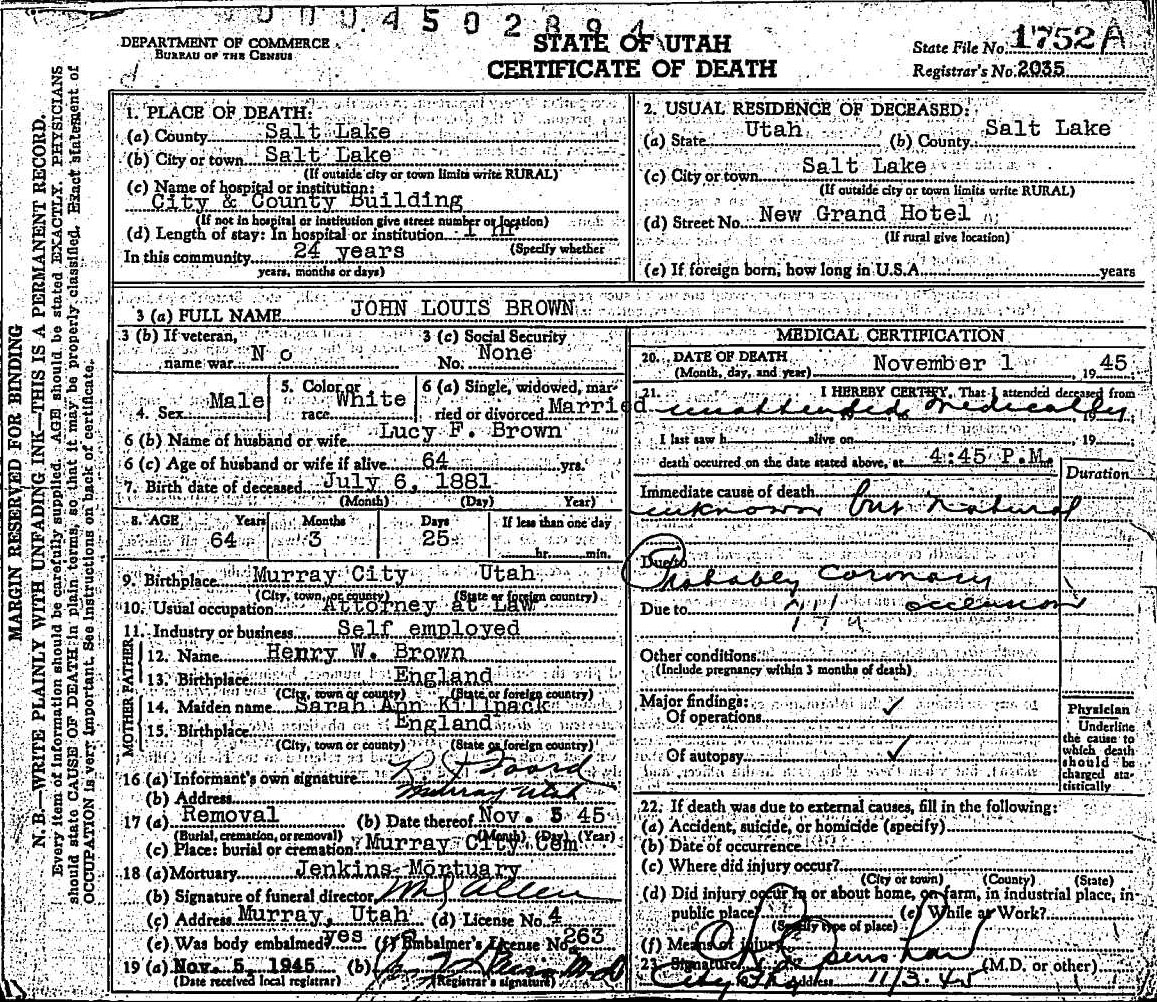 0004502894
DEPARTMENT OF COMMERCE
BUREAU OF THE CENSUS
STATE OF UTAH
CERTIFICATE OF DEATH
State File No. 1752A
Registrar's No. 2035
MARGIN RESERVED FOR BINDING
N. B.—WRITE PLAINLY WITH UNFADING INK—THIS IS A PERMANENT RECORD.
Every item of information should be carefully supplied. AGE should be stated EXACTLY. PHYSICIANS
should state CAUSE OF DEATH in plain terms, so that it may be properly classified. Exact statement of
OCCUPATION is very important. See instructions on back of certificate.
1. PLACE OF DEATH:
(a) County Salt Lake
(b) City or town Salt Lake
(If outside city or town limits write RURAL)
(c) Name of hospital or institution:
City & County Building
(If not in hospital or institution give street number or location)
(d) Length of stay: In hospital or institution 1 hr
(Specify whether
In this community 24 years
years, months or days)
2. USUAL RESIDENCE OF DECEASED:
(a) State Utah (b) County Salt Lake
(c) City or town Salt Lake
(If outside city or town limits write RURAL)
(d) Street No. New Grand Hotel
(If rural give location)
(e) If foreign born, how long in U.S.A. years
3 (a) FULL NAME JOHN LOUIS BROWN
3 (b) If veteran,
name war No
3 (c) Social Security
No. None
4. Sex Male
5. Color or
race White
6 (a) Single, widowed, mar-
ried or divorced Married
6 (b) Name of husband or wife Lucy F. Brown
6 (c) Age of husband or wife if alive 64 yrs.
7. Birth date of deceased July 6, 1881
(Month) (Day) Year)
8. AGE Years Months Days If less than one day
64 3 25 hr. min.
9. Birthplace Murray City Utah
(City, town, or county) (State or foreign country)
10. Usual occupation Attorney at Law
11. Industry or business Self employed
FATHER
12. Name Henry W. Brown
13. Birthplace England
(City, town or county) (State or foreign country)
MOTHER
14. Maiden name Sarah Ann Killpack
15. Birthplace England
(City, town or county) (State or foreign country)
16 (a) Informant's own signature
(b) Address Murray Utah
17 (a) Removal (b) Date thereof Nov. 5 45
(Burial, cremation, or removal) (Month) (Day) (Year)
(c) Place: burial or cremation Murray City Cem
18 (a) Mortuary Jenkins Mortuary
(b) Signature of funeral director M J Allen
(c) Address Murray, Utah (d) License No. 4
(e) Was body embalmed? yes (f) Embalmer's License No. 263
19 (a) Nov. 5, 1945 (b)
(Date received local registrar) (Registrar's signature)
MEDICAL CERTIFICATION
20. DATE OF DEATH
(Month, day, and year) November 1 1945
21. I HEREBY CERTIFY, That I attended deceased from
unattended medically 19
I last saw h alive on 19
death occurred on the date stated above, at 4:45 P.M.
Duration
Immediate cause of death
unknown but natural
Due to
Probably coronary
Due to occlusion
Other conditions
(Include pregnancy within 3 months of death)
Major findings:
Of operations ✓
Of autopsy ✓
Physician
Underline
the cause to
which death
should be
charged sta-
tistically
22. If death was due to external causes, fill in the following:
(a) Accident, suicide, or homicide (specify)
(b) Date of occurrence
(c) Where did injury occur?
(City or town) (County) (State)
(d) Did injury occur in or about home, on farm, in industrial place, in
public place (e) While at Work?
(Specify type of place)
(f) Means of injury
23. Signature (M.D. or other)
City Address 11/3.45